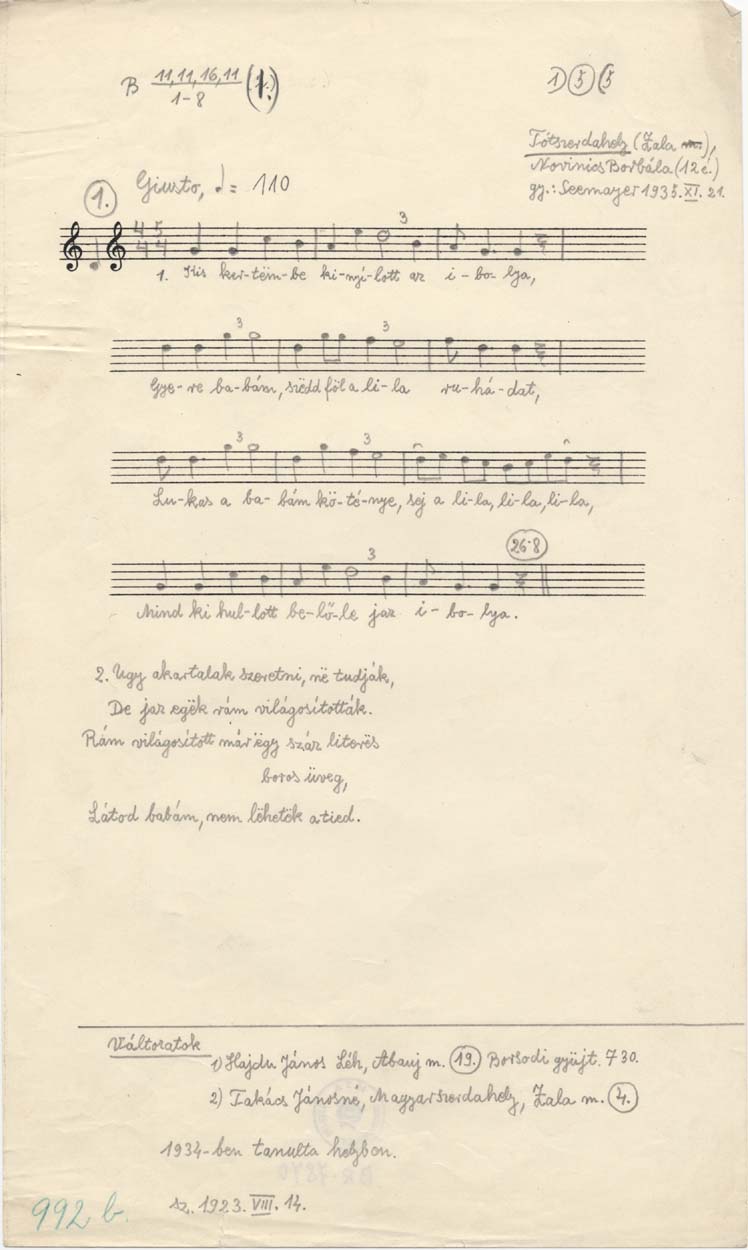 B 11, 11, 16, 11 (1.)
1-8
1) 5 (5
Tótszerdahely (Zala m.),
Novinics Borbála (12 é.)
gy.: Seemayer 1935. XI. 21.
1. Giusto, ♩= 110
4 5
4 4
3
1. Kis ker-tëm-be ki-nyí-lott az i-bo-lya,
3 3
Gye-re ba-bám, szëdd föl a li-la ru-há-dat,
3 3
Lu-kas a ba-bám kö-té-nye, sej a li-la, li-la, li-la,
26-8
3
Mind ki hul-lott be-lő-le jaz i-bo-lya.
2. Ugy akartalak szeretni, në tudják,
De jaz egëk rám világosították.
Rám világosított már ëgy száz literës
boros üveg,
Látod babám, nem lëhetëk a tied.
Változatok
1) Hajdu János Léh, Abauj m. 19. Borsodi gyüjt. 730.
2) Takács Jánosné, Magyarszerdahely, Zala m. 4.
1934-ben tanulta helyben.
sz. 1923. VIII. 14.
992 b.